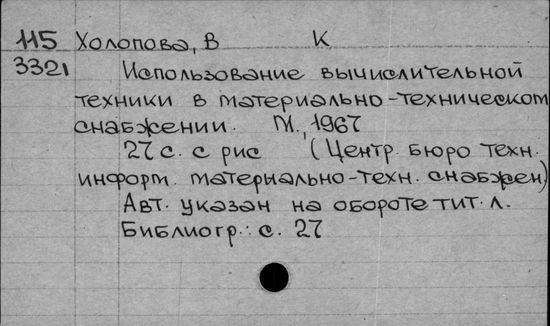 115 Холопова, В К
3321 Использование вычислительной
техники в материально-техническом
снабжении. М., 1967
27 с. с рис (Центр. бюро техн.
информ. материально-техн. снабжен)
Авт. указан на обороте тит. л.
Библиогр.: с. 27